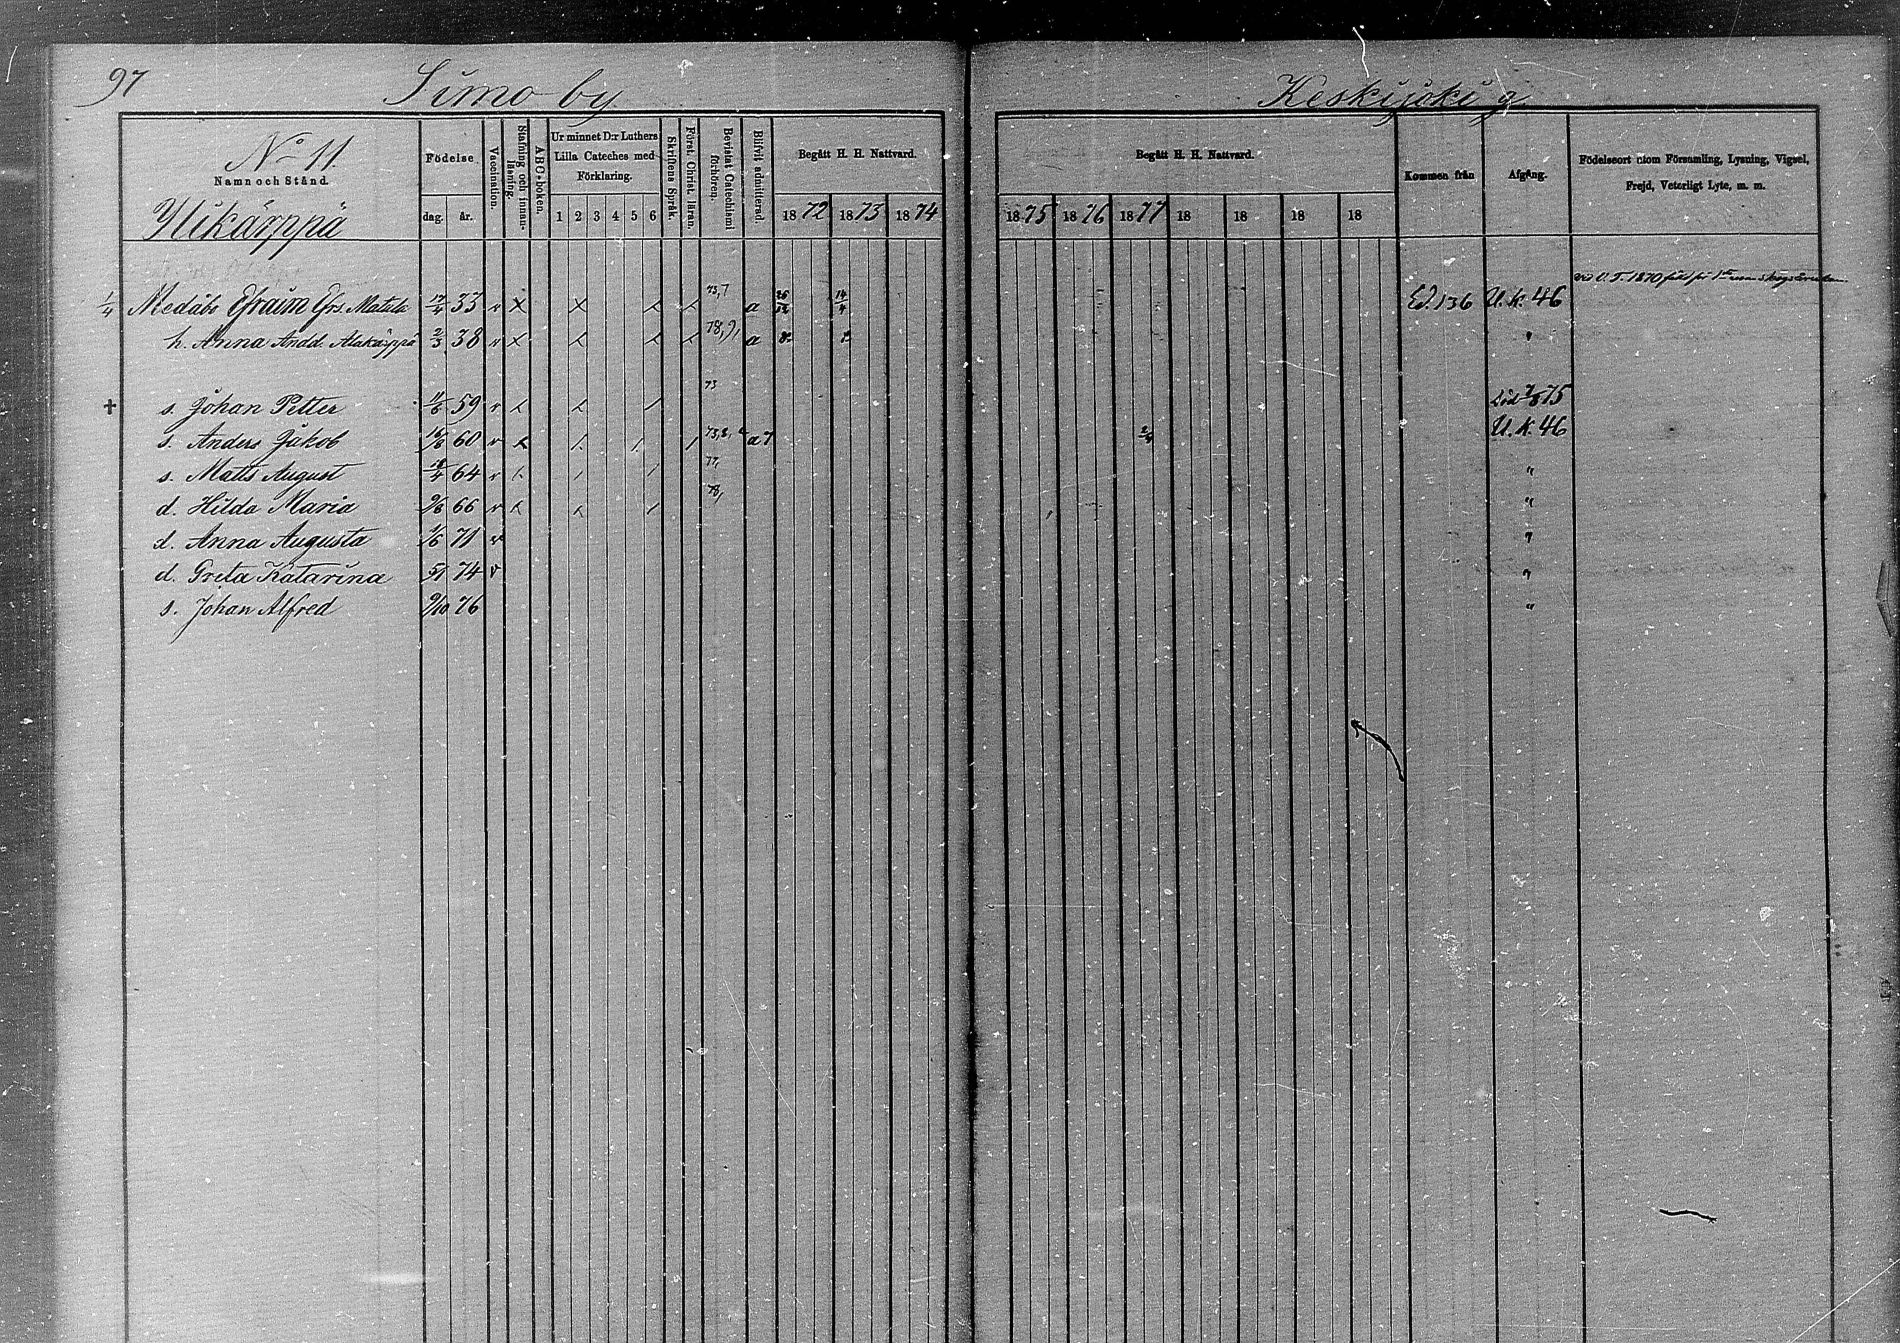 97 Simo by Keskijoki g
No 11.
Namn och Stånd.
Ylikärppä
Födelse
dag. år.
Vaccination.
Stafning och innan-läsning.
ABC-boken.
Ur minnet D:r Luthers
Lilla Cateches med
Förklaring.
1 2 3 4 5 6
Skriftens Språk.
Först. Christ. läran.
Bevistat Catechismi förhören.
Blifvit admitterad.
Begått H. H. Nattvard.
1872 1873 1874
Begått H. H. Nattvard.
1875 1876 1877 18 18 18 18
Kommen från
Afgång.
Födelseort utom Församling, Lysning, Vigsel,
Frejd, Veterligt Lyte, m. m.
vid U. T. 1870 för 1sta
1/4 Medåbo Efraim Efrs. Matala 17/4 33 v x x 73,7 a 26/12 14/4 Ed. 136 U. k. 46
h. Anna Andd. Alakärppä 2/3 38 v x 78,9, a "
† s. Johan Petter 11/6 59 v 73 död 7/8 75
s. Anders Jakob 16/8 60 v a7 2/4 U. k. 46
s. Matts August 18/4 64 v 77, "
d. Hilda Maria 9/8 66 v 78, "
d. Anna Augusta 1/6 71 v "
d. Greta Katarina 5/1 74 v "
s. Johan Alfred 9/10 76 "